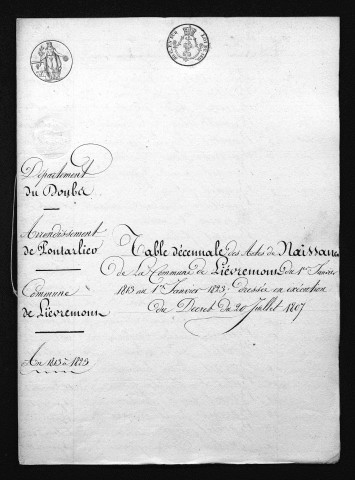 Département
du Doubs
Arrondissement
de Pontarlier
Commune
de Lièvremont
An 1813 à 1823
Table décennale des Actes de Naissance
de la Commune de Lièvremont du 1er Janvier
1813 au 1er Janvier 1823 dressée en exécution
du Décret du 20 Juillet 1807